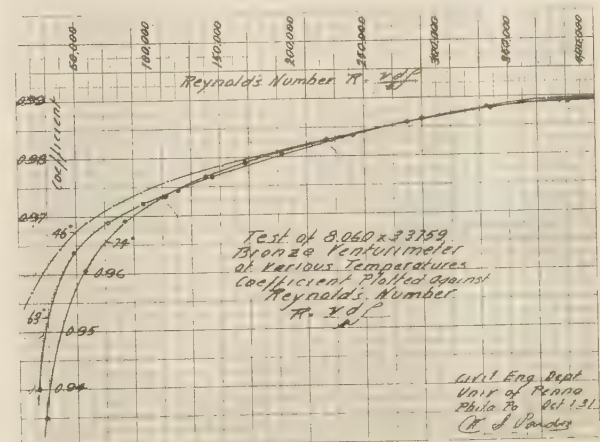 50,000 100,000 150,000 200,000 250,000 300,000 350,000 400,000
Reynold's Number R = vdρ/μ
0.99
Coefficient
0.98
0.97
46°
74°
0.96
63°
0.95
0.94
Test of 8.060 x 3.3759
Bronze Venturimeter
at Various Temperatures
Coefficient Plotted Against
Reynolds Number
R = vdρ/μ
Civil Eng Dept
Univ of Penna
Phila Pa Oct 1 31